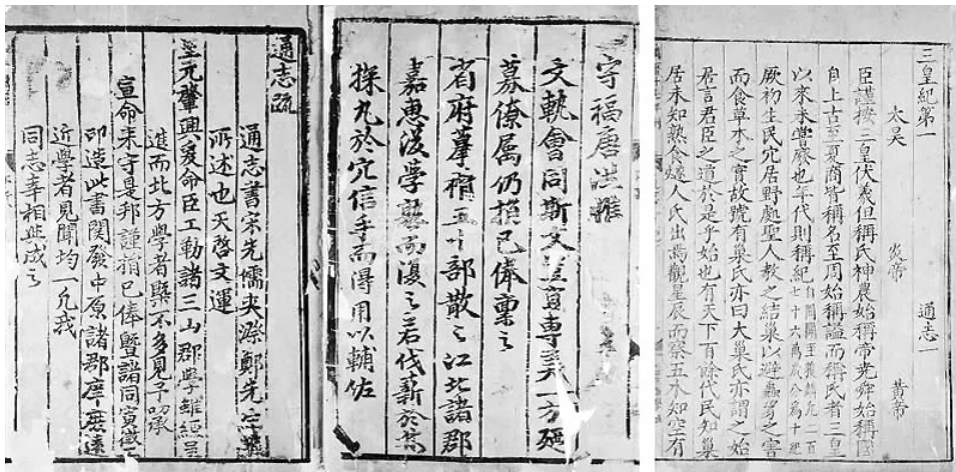 通志疏
通志書宋先儒夾漈鄭先生樵
所述也天啓文運
皇元肇興爰命臣工勒諸三山郡學雖經呈
進而北方學者槩不多見予叨承
宣命來守是邦謹捐己俸暨諸同寅徵工
印造此書関發中原諸郡庠庶遠
近學者見聞均一凡我
同志幸相與成之
守福唐洪惟
文軌會同斯文豈宜專美一方
募僚屬仍捐己俸稟之
省府摹褙五十部散之江北諸郡
嘉惠後學熟而復之若伐薪於
探丸於穴信手而得用以輔佐
三皇紀第一 通志一
太昊 炎帝 黃帝
臣謹按三皇伏羲但稱氏神農始稱帝堯舜始稱國
自上古至夏商皆稱名至周始稱諡而稱氏者三皇
以來未嘗廢也年代則稱紀自開闢至獲麟凡二百七十六萬歲分為十紀
厥初生民穴居野處聖人教之結巢以避蟲豸之害
而食草木之實故號有巢氏亦曰大巢氏亦謂之始
君言君臣之道於是乎始也有天下百餘代民知巢
居未知熟食燧人氏出焉觀星辰而察五木知空有